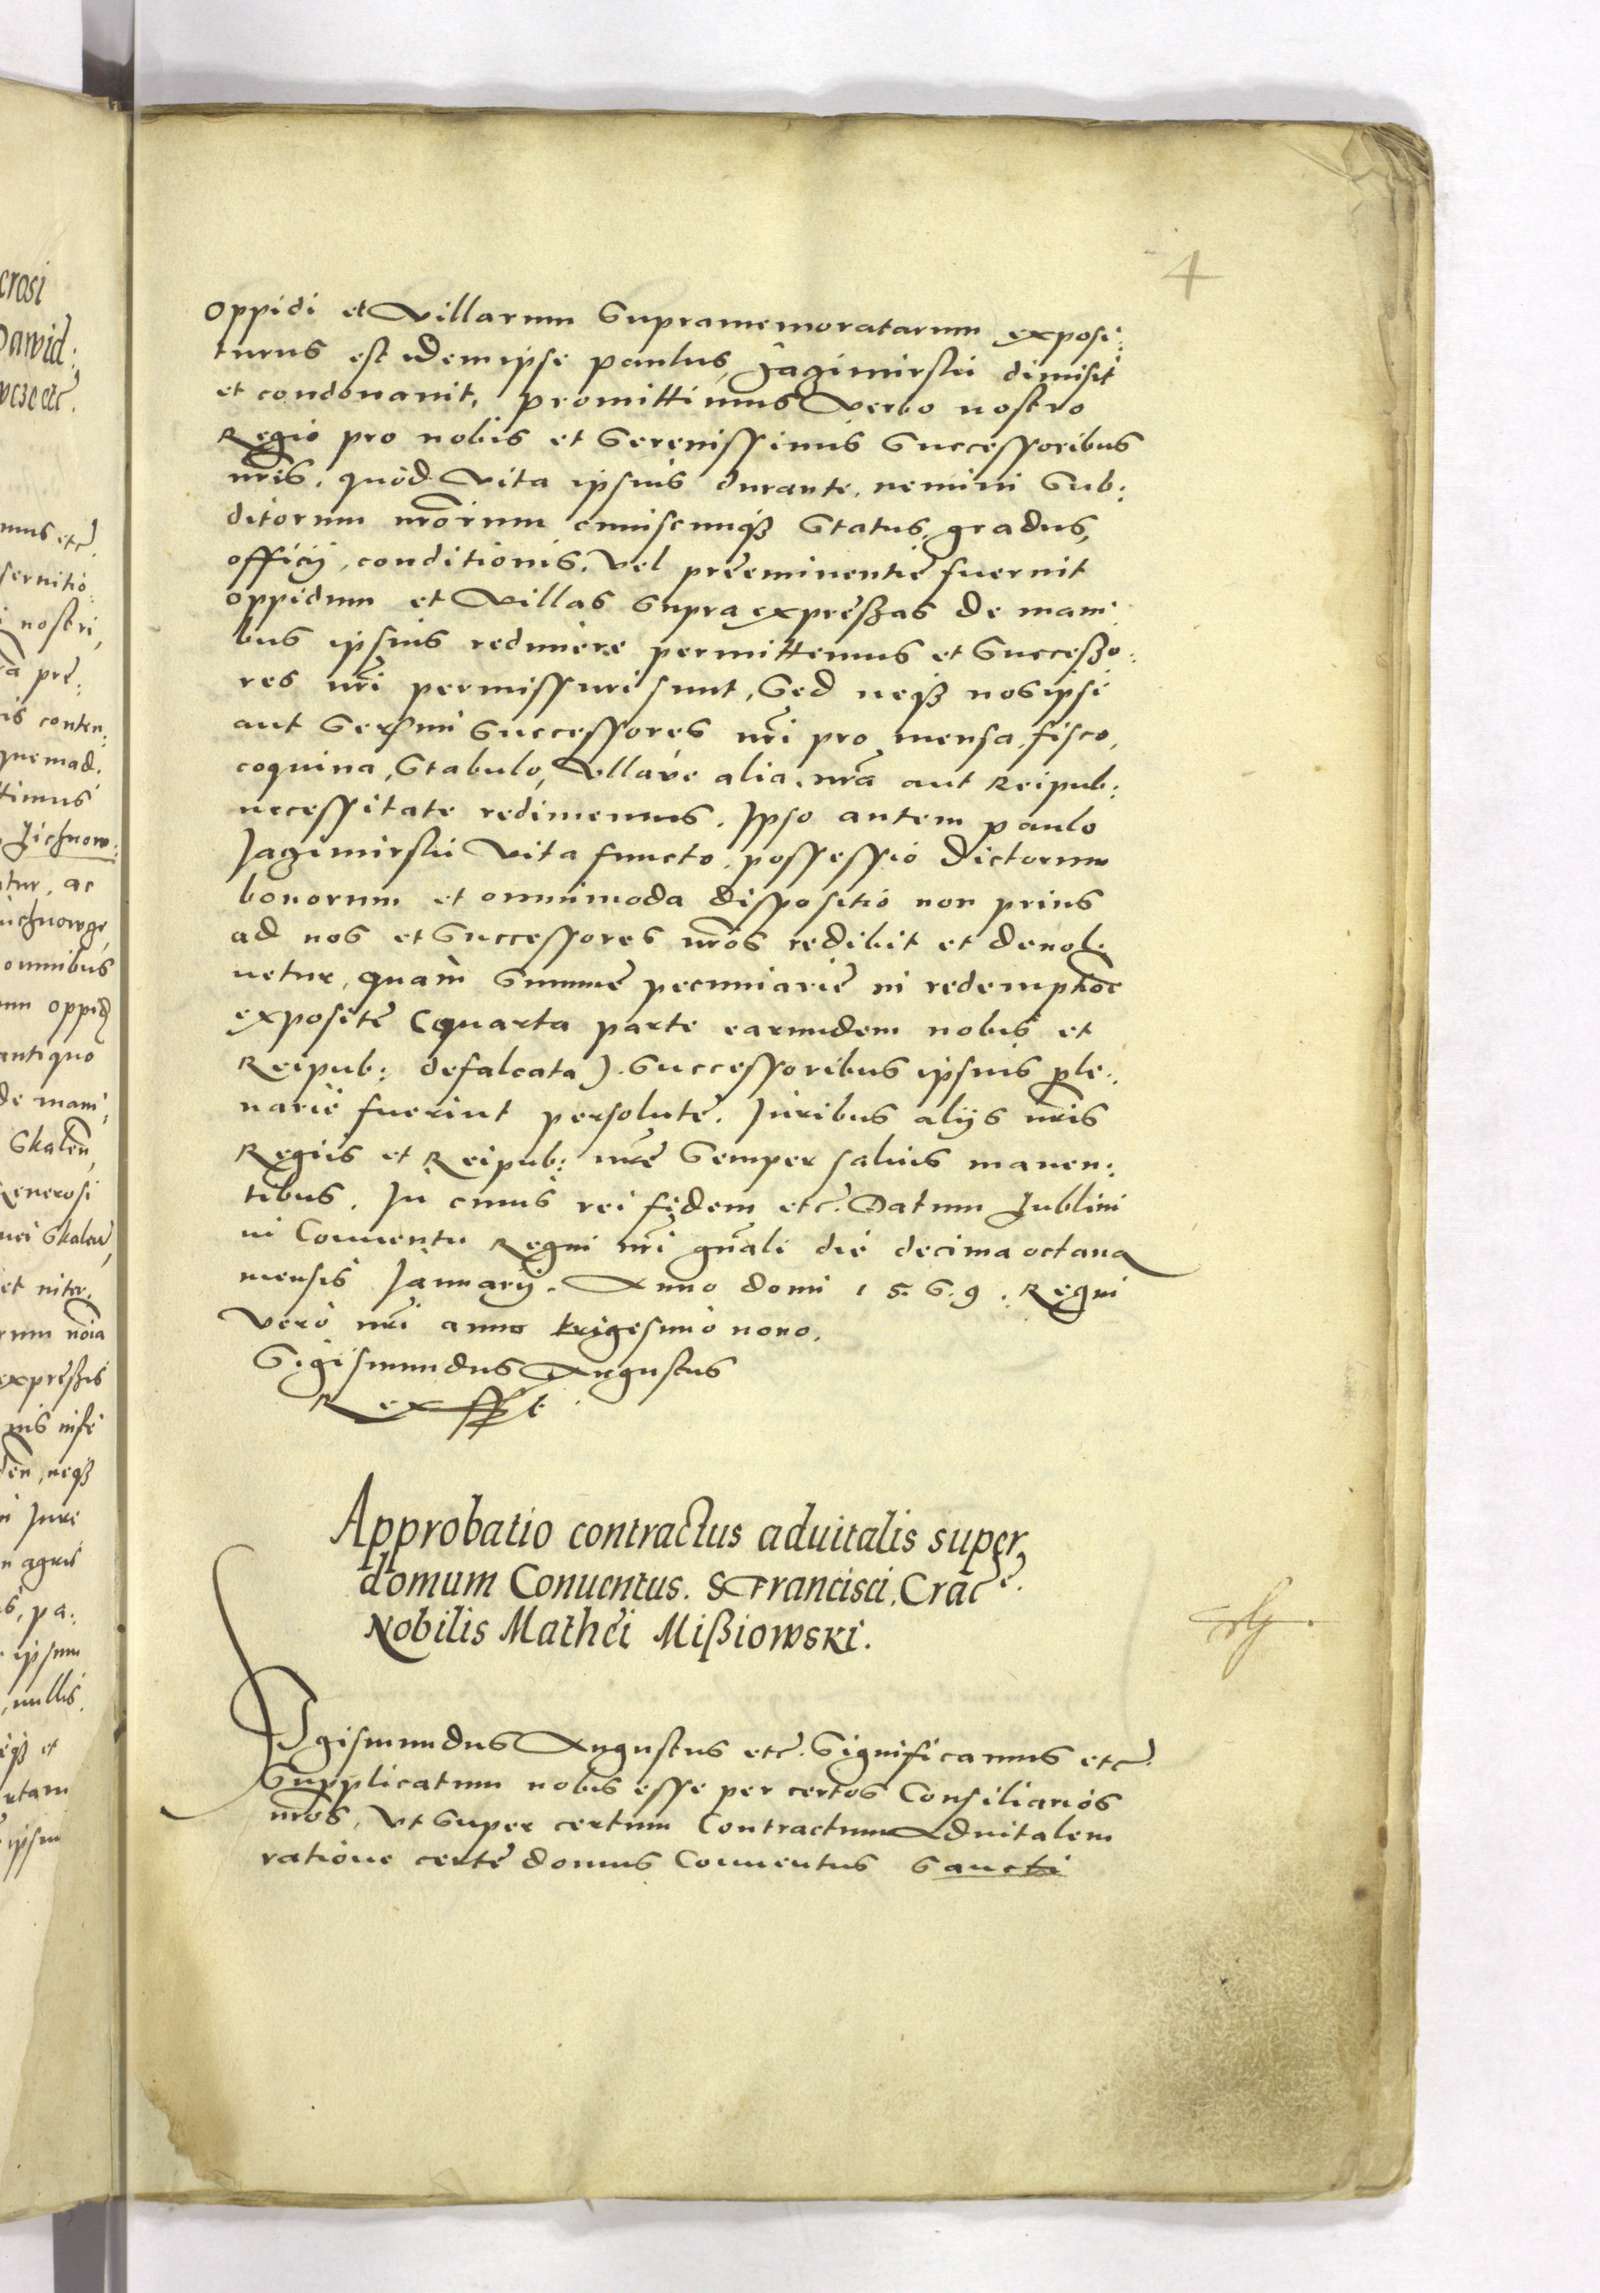 4
oppidi et Villarum Supramemoratarum exposi:
turus est idem ipse Paulus Jagimirski dimisit
et condonauit, promittimus Verbo nostro
Regio pro nobis et Serenissimis Successoribus
nr̃is. quòd Vita ipsius durante, nemini Sub:
ditorum nr̃orum cuiuscunqꝫ Status, gradus,
officij, conditionis, Vel preeminentię fueruit
oppidum et Villas Supra expreßas de mani
bus ipsius redimere permittemus et Succeßo:
res nr̃i permissuri sunt, Sed neqꝫ nos ipsi
aut Serm̃i Successores nr̃i pro mensa, fisco,
coquina, Stabulo, Vllaúe alia nr̃a aut Reipub:
necessitate redimemus. Ipso autem Paulo
Jagimirski Vita functo, possessio dictorum
bonorum et omnimoda dispositio non prius
ad nos et Successores nr̃os redibit et deuol:
uetur, quàm Summę pecuniarię in redemptiõe
expositę (quarta parte earundem nobis et
Reipub: defalcata). Successoribus ipsius ple:
narię fuerint persolutę. Iuribus alijs nr̃is
Regiis et Reipub: nr̃ę Semper saluis manen:
tibus. In cuius rei fidem etc̃. Datum Lublini
in Conuentu Regni nr̃i gñali die decima octaua
mensis Januarij. Anno domi 1 5. 6. 9. Regni
Vero nr̃i anno trigesimo nono.
Sigismundus Augustus
Rex sst
Approbatio contractus aduitalis super
domum Conuentus. S Francisci, Crac̃ę.
Nobilis Mathei Mißiowski.
Sigismundus Augustus etc̃. Significamus etc̃.
Supplicatum nobis esse per certos Consiliarios
nr̃os, Vt Super certum Contractum Aduitalem
ratione certę domus Conuentus Sancti